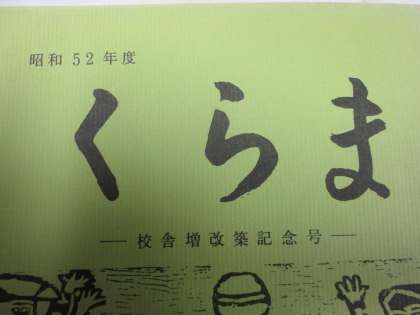 昭和52年度
くらま
―校舎増改築記念号―